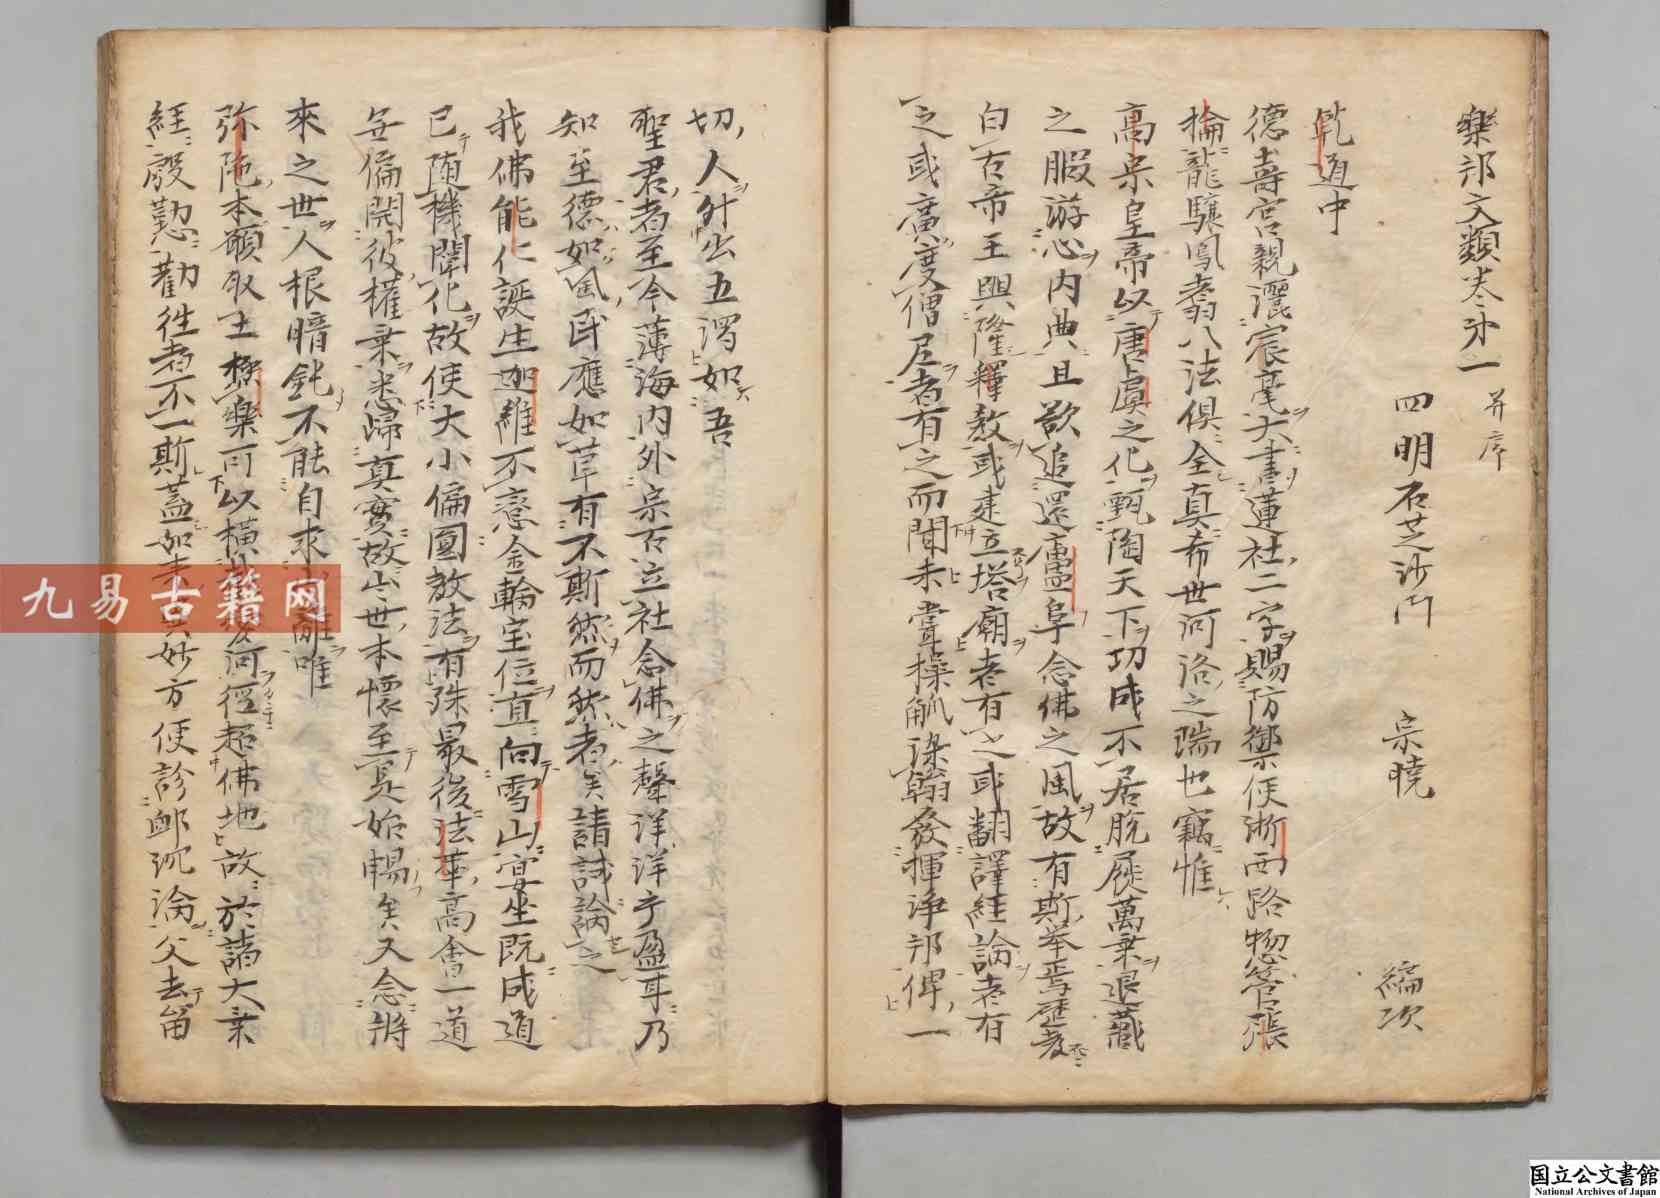 樂邦文類卷第一 并序
四明石芝沙門 宗曉 編次
乾道中
德壽宮親灑宸毫大書蓮社二字賜防禦使浙西路惣管張
掄龍驤鳳翥八法俱全真希世河洛之瑞也竊惟
高宗皇帝以唐虞之化甄陶天下功成不居脫屣萬乗退藏
之暇游心内典且欲追還廬阜念佛之風故有斯举焉歷考
自古帝王興隆釋教或建立塔廟者有之或翻譯経論者有
之或廣度僧尼者有之而聞未甞操觚染翰發揮浄邦俾一
切人升出五濁如吾
聖君者至今薄海内外宗古立社念佛之聲洋洋乎盈耳乃
知至德如風民應如草有不斯然而然者矣請試論之
我佛能仁誕生迦維不恋金輪宝位直向雪山宴坐既成道
已随機闡化故使大小偏圓教法有殊最後法華高會一道
無偏開彼權乗悉歸真實故出世本懷至是始暢矣又念將
來之世人根暗鈍不能自求離唯
弥陁本願取土極樂可以横河徑超佛地故於諸大乗
経慇懃勸往者不一斯蓋如来妙方便診郵沉淪父去留
九易古籍网
国立公文書館
National Archives of Japan